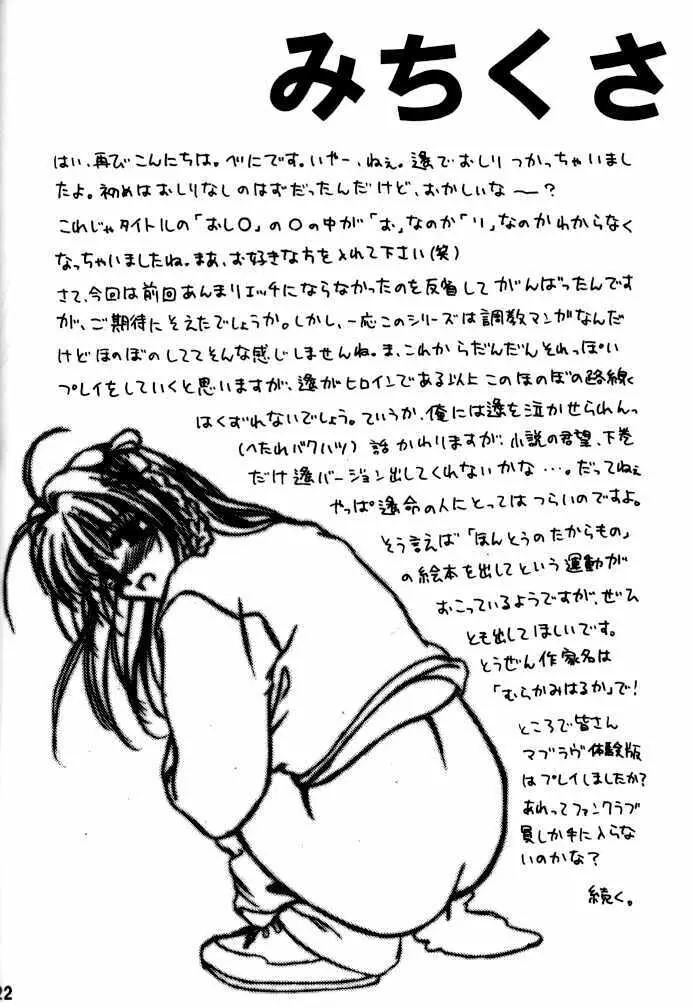 みちくさ
はい、再びこんにちは。べにです。いやー、ねぇ。遙でおしりつかっちゃいまし
たよ。初めはおしりなしのはずだったんだけど、おかしいな〜？
これじゃタイトルの「おし〇」の〇の中が「お」なのか「り」なのかわからなく
なっちゃいましたね。まあ、お好きな方を入れて下さい(笑)
さて、今回は前回あんまりエッチにならなかったのを反省してがんばったんです
が、ご期待にそえたでしょうか。しかし、一応このシリーズは調教マンガなんだ
けどほのぼのしててそんな感じしませんね。ま、これからだんだんそれっぽい
プレイをしていくと思いますが、遙がヒロインである以上このほのぼの路線
はくずれないでしょう。ていうか、俺には遙を泣かせられんっ
(へたれバクハツ) 話かわりますが、小説の君望、下巻
だけ遙バージョン出してくれないかな…。だってねぇ
やっぱ遙命の人にとってはつらいのですよ。
そう言えば「ほんとうのたからもの」
の絵本を出してという運動が
おこっているようですが、ぜひ
とも出してほしいです。
とうぜん作家名は
「むらかみはるか」で！
ところで皆さん
マブラヴ体験版
はプレイしましたか？
あれってファンクラブ
員しか手に入らな
いのかな？
続く。
22